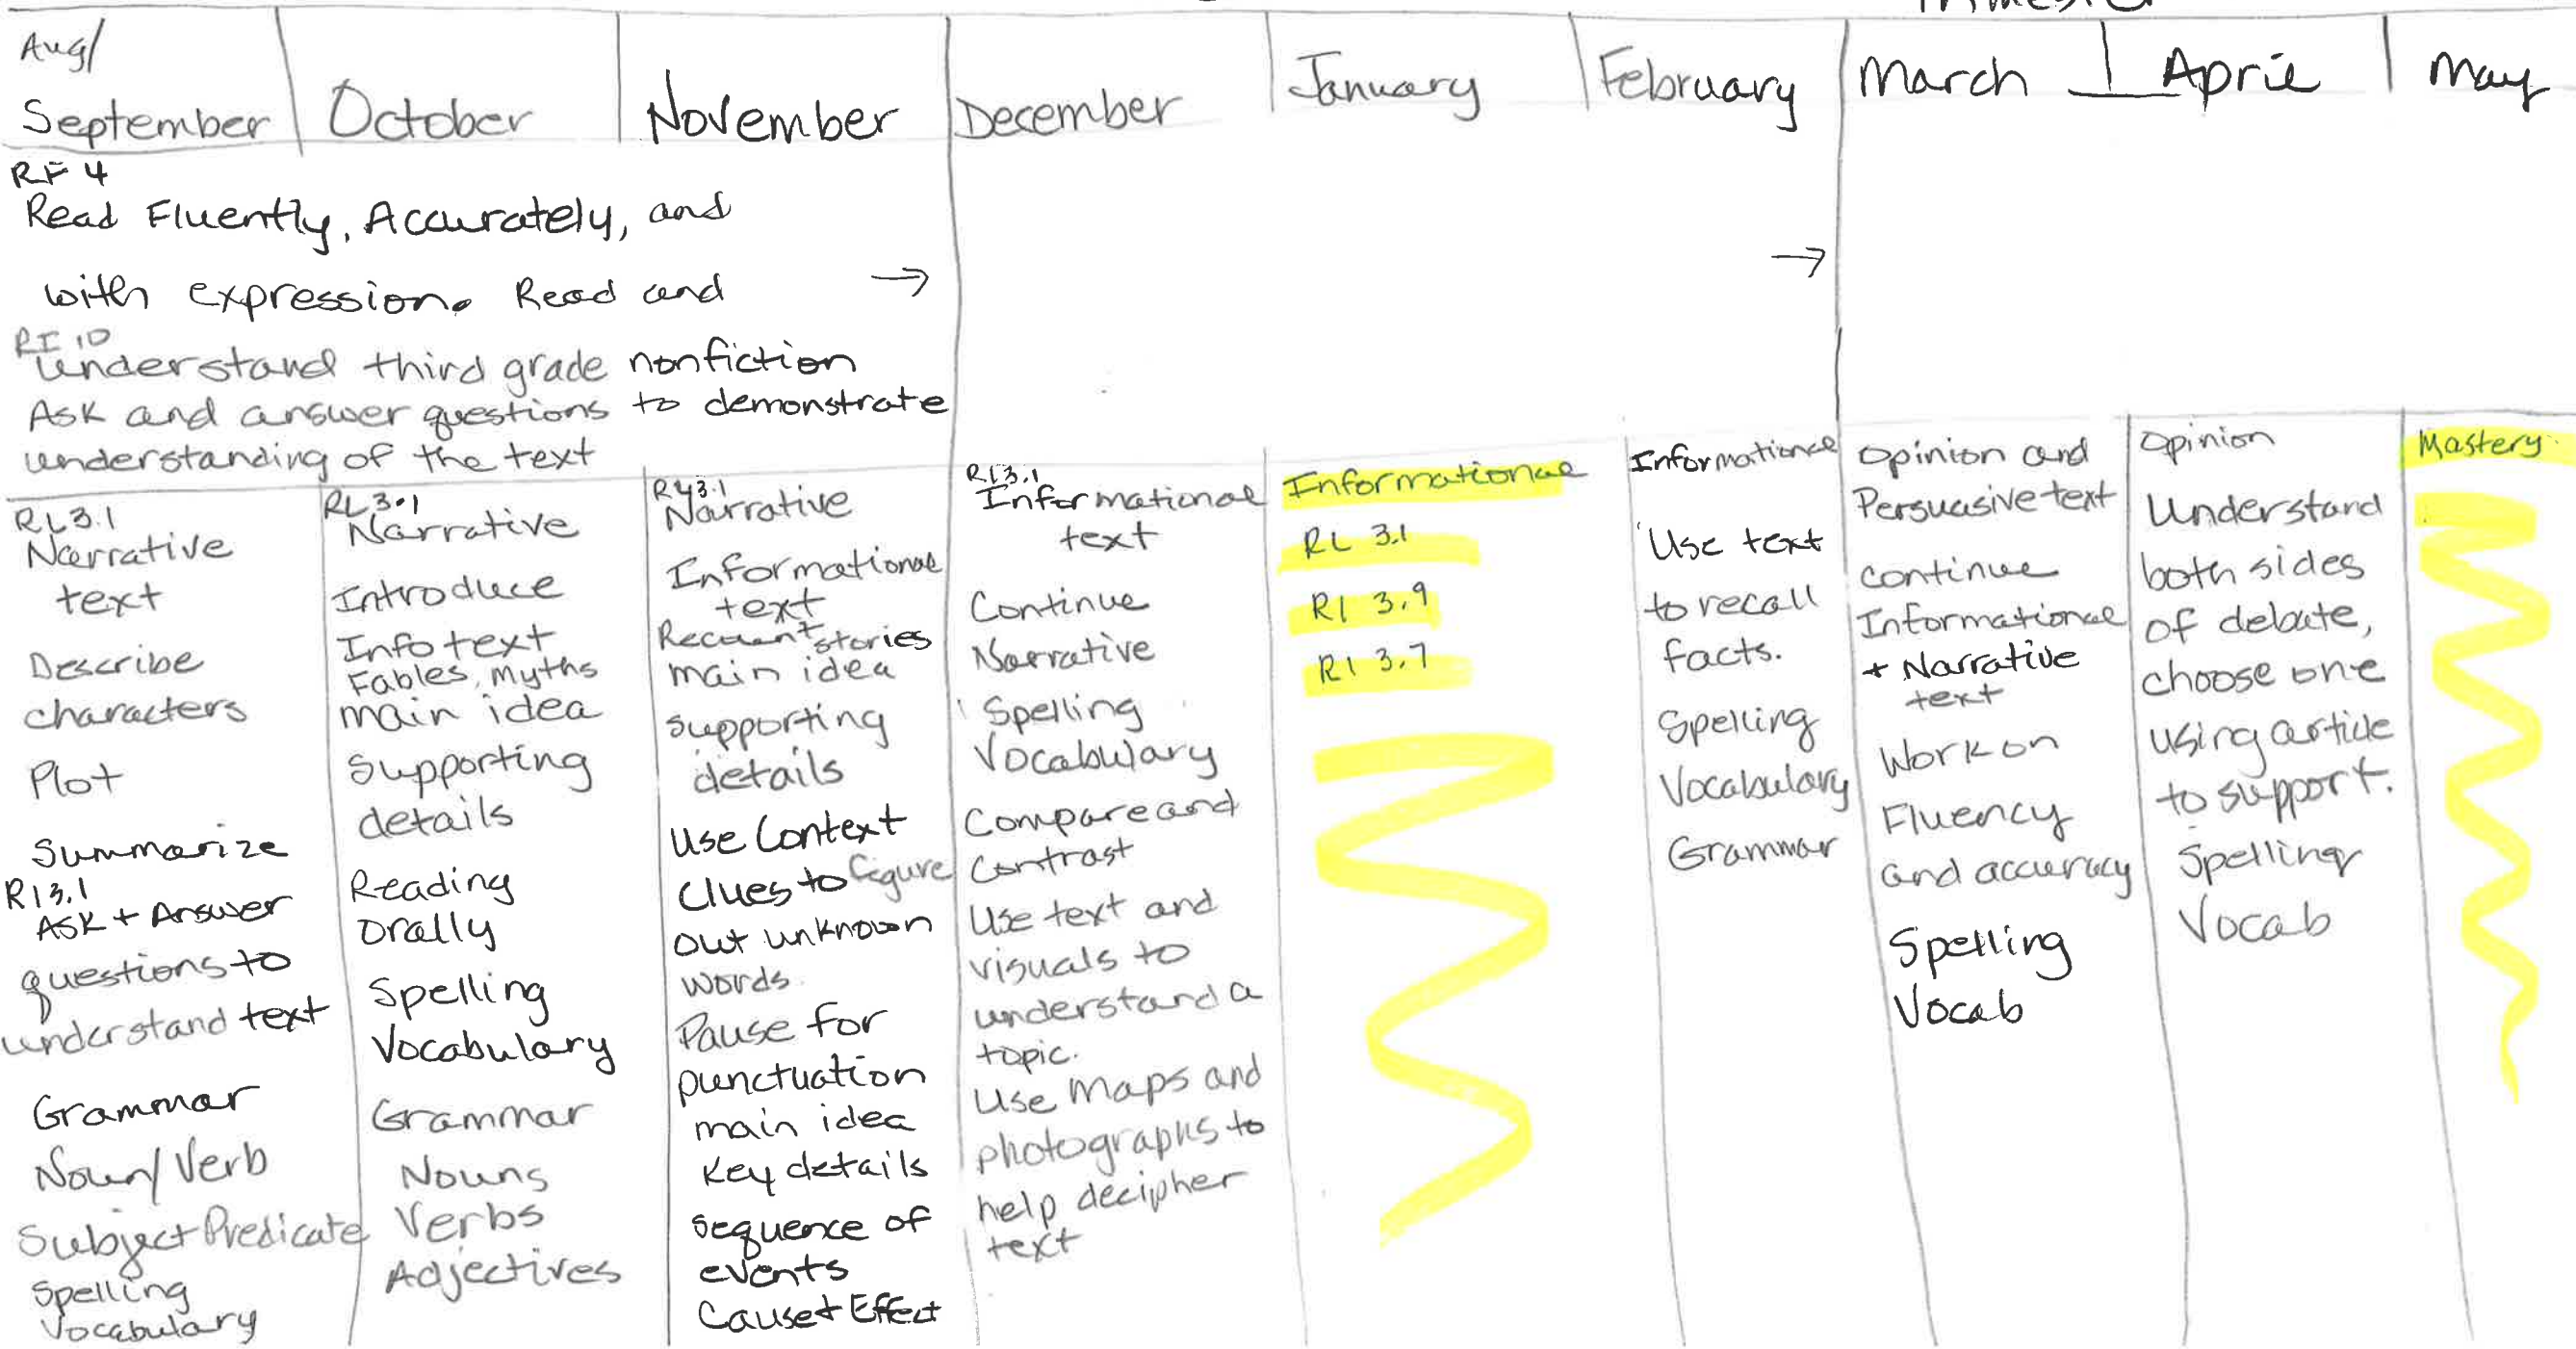 Trimester
Aug/
September
October
November
December
January
February
March
April
May
RF 4
Read Fluently, Accurately, and
with expression. Read and →
→
RI 10
understand third grade nonfiction
Ask and answer questions to demonstrate
understanding of the text
RL3.1
Narrative
text
Describe
characters
Plot
Summarize
RI3.1
Ask + Answer
questions to
understand text
Grammar
Noun/Verb
Subject Predicate
Spelling
Vocabulary
RL3.1
Narrative
Introduce
Info text
Fables, Myths
main idea
Supporting
details
Reading
Orally
Spelling
Vocabulary
Grammar
Nouns
Verbs
Adjectives
Narrative
Informational
text
Recount stories
main idea
supporting
details
Use Context
Clues to figure
out unknown
words.
Pause for
punctuation
main idea
Key details
Sequence of
events
Cause + Effect
RI3.1
Informational
text
Continue
Narrative
Spelling
Vocabulary
Compare and
Contrast
Use text and
visuals to
understand a
topic.
Use Maps and
photographs to
help decipher
text
Informational
RL 3.1
RI 3.9
RI 3.7
Informational
Use text
to recall
facts.
Spelling
Vocabulary
Grammar
Opinion and
Persuasive text
continue
Informational
+ Narrative
text
Work on
Fluency
and accuracy
Spelling
Vocab
Opinion
Understand
both sides
of debate,
choose one
using article
to support.
Spelling
Vocab
Mastery